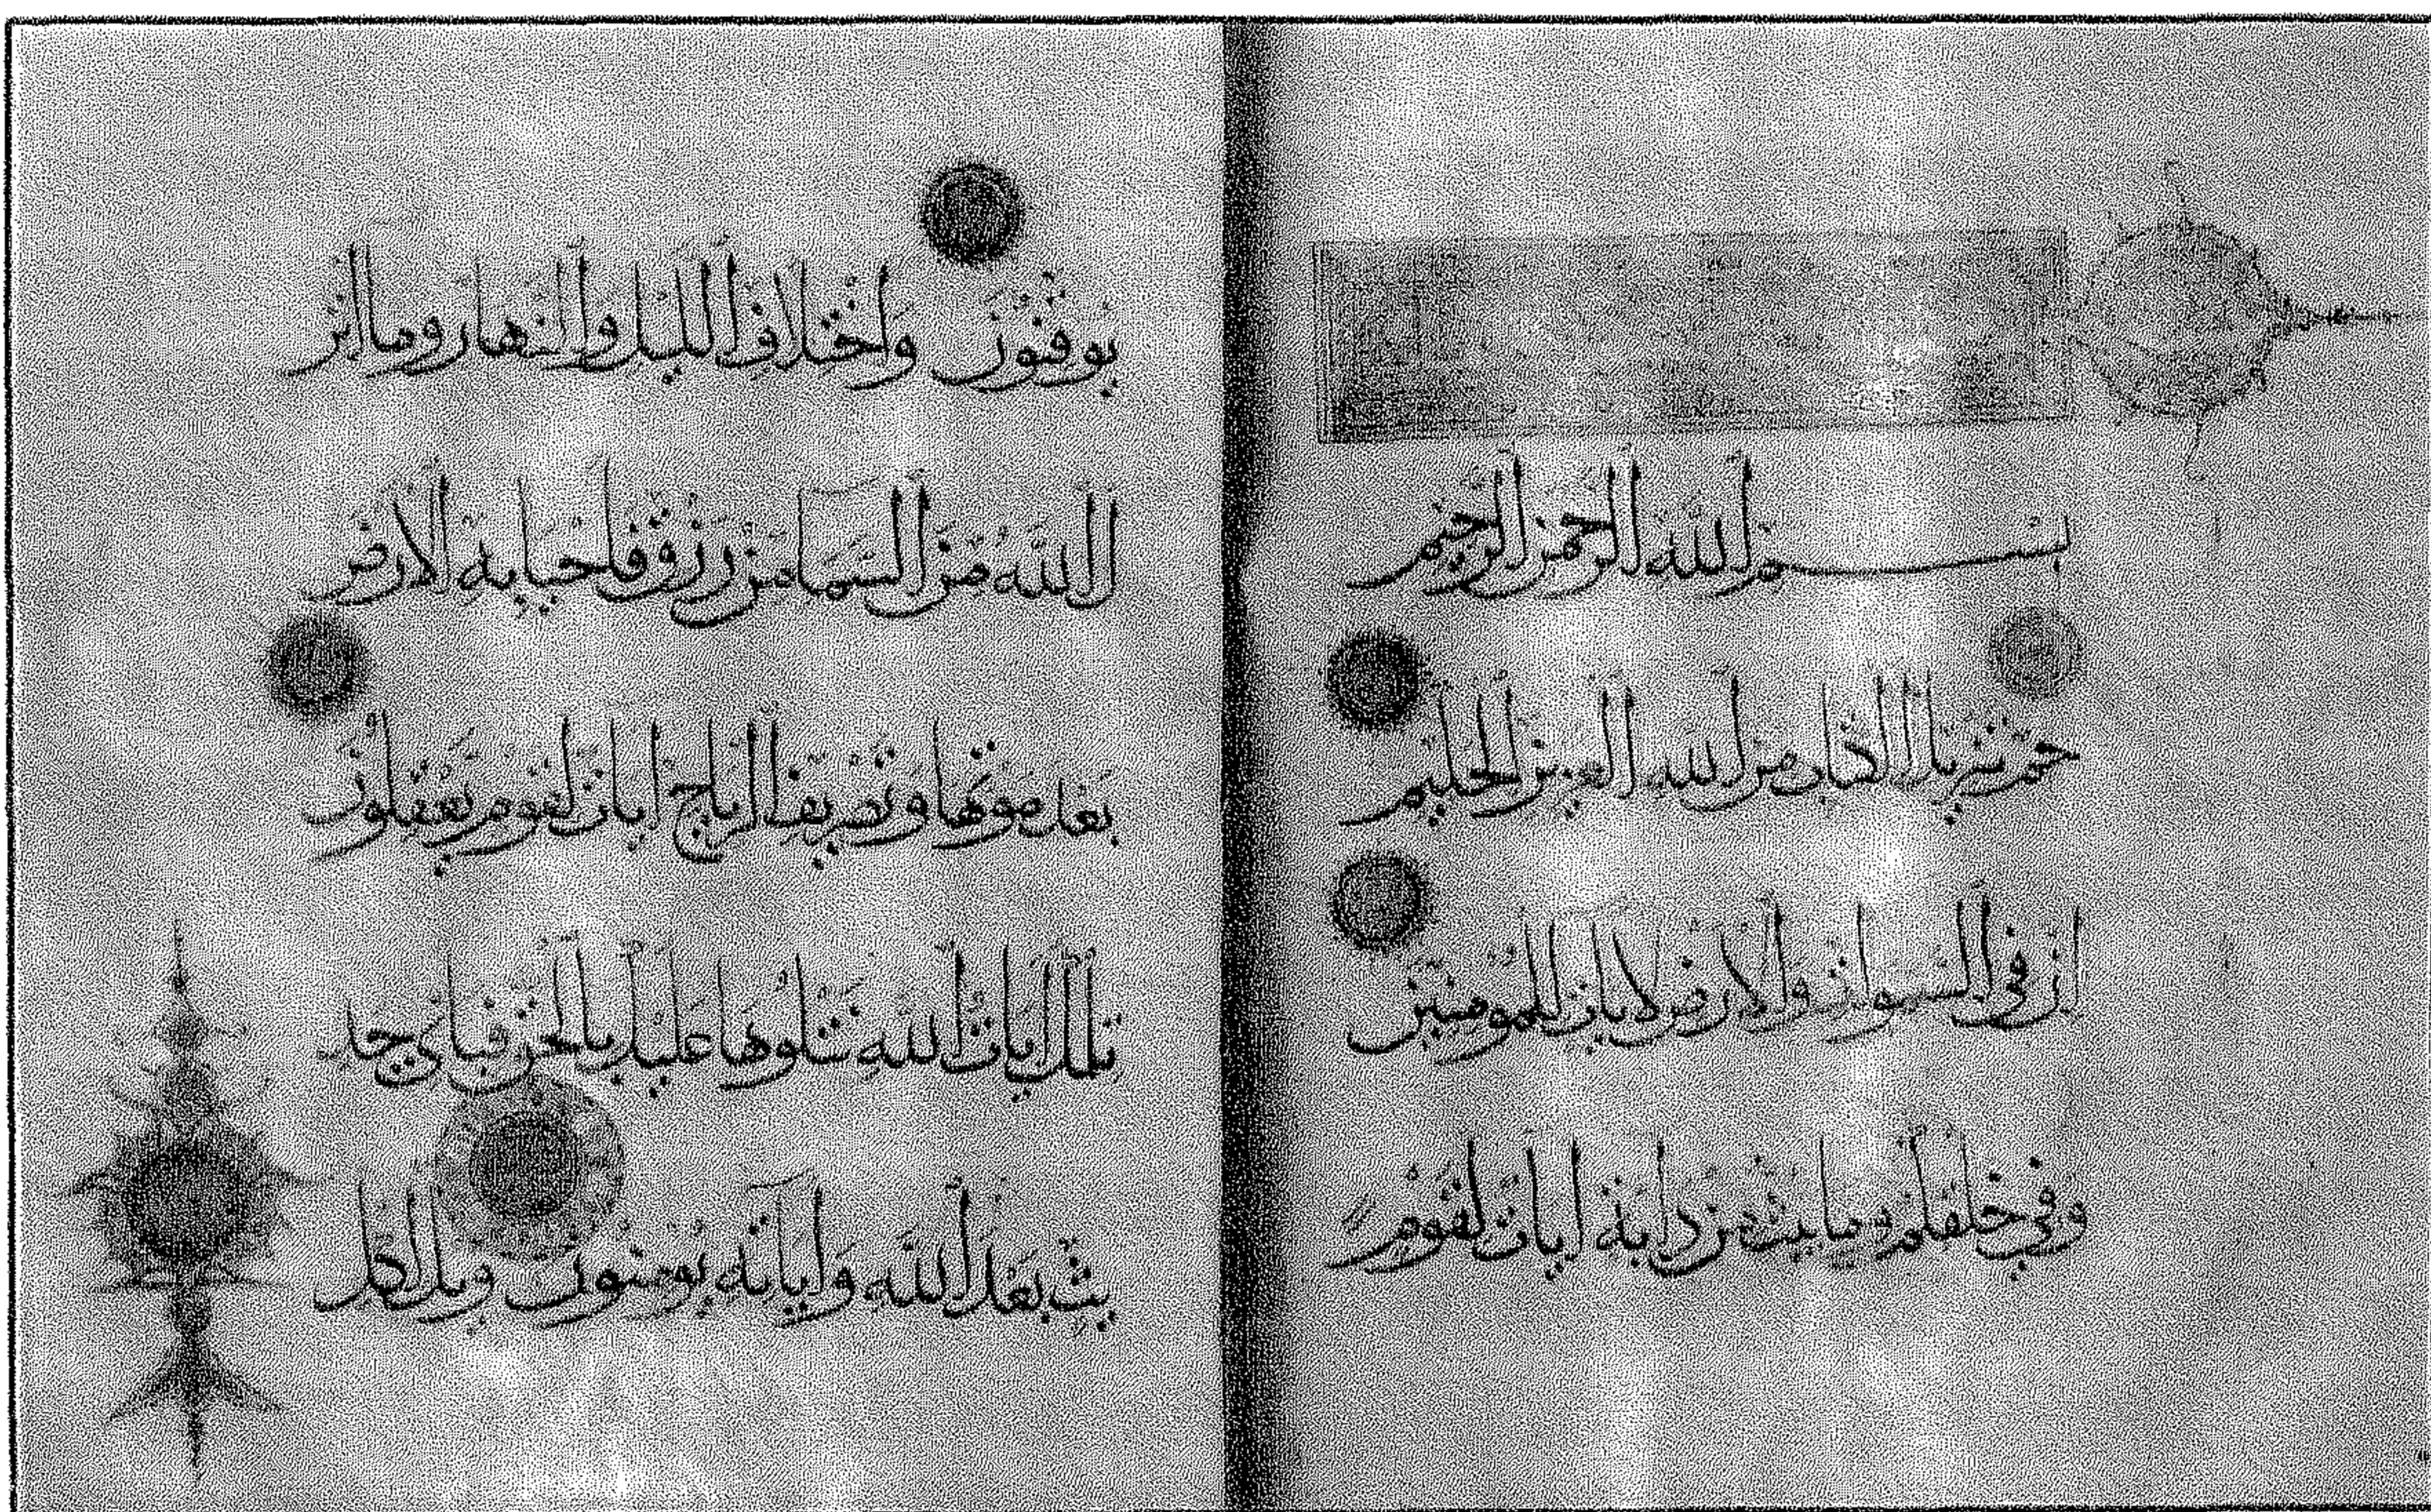 بسم الله الرحمن الرحيم
حم تنزيل الكتاب من الله العزيز الحكيم
ان في السموات والارض لايات للمومنين
وفي خلقكم وما يبث من دابة ايات لقوم
يوقنون واختلاف الليل والنهار وما انز
ل الله من السما من رزق فاحيا به الارض
بعد موتها وتصريف الرياح ايات لقوم يعقلون
تلك ايات الله نتلوها عليك بالحق فباي حد
يث بعد الله واياته يومنون ويل لكل